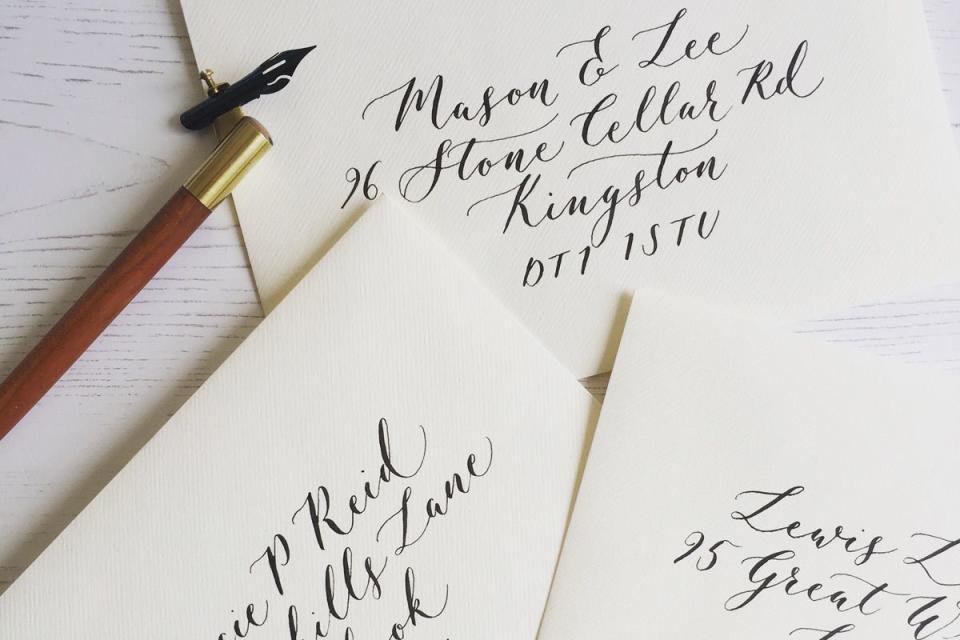 Mason & Lee
96 Stone Cellar Rd
Kingston
DT1 1STU
P Reid
Lane
Lewis
95 Great